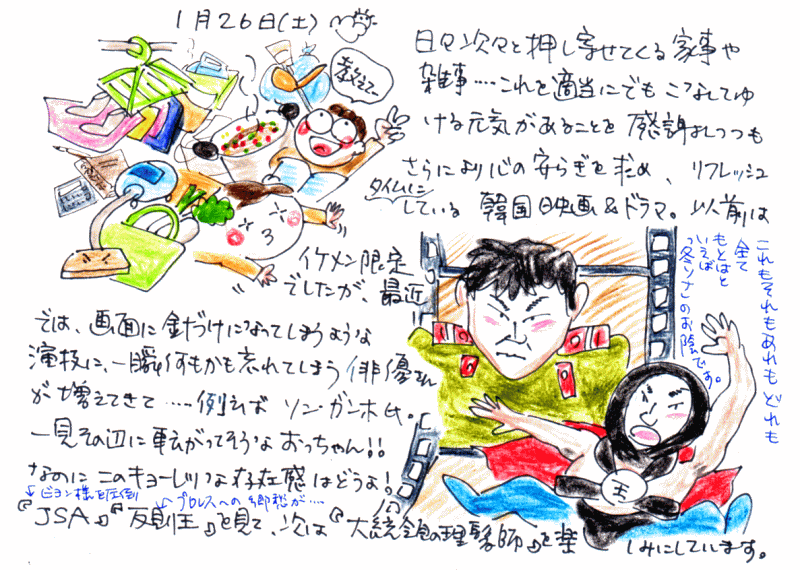 1月26日(土)
教えて〜
日々次々と押し寄せてくる家事や
雑事‥‥これを適当にでもこなしてゆ
ける元気があることを感謝しつつも
さらにより心の安らぎを求め、リフレッシュ
タイムに
している韓国映画&ドラマ。以前は
イケメン限定
でしたが、最近
では、画面に釘づけになってしまうような
演技に、一瞬何もかも忘れてしまう俳優さん
が増えてきて‥‥例えばソン・ガンホ氏。
一見その辺に転がってそうなおっちゃん!!
なのにこのキョーレツな存在感はどうよ!
↓ビョン様を圧倒
↙プロレスへの郷愁が‥‥
『JSA』『反則王』を見て、次は『大統領の理髪師』を楽しみにしています。
これもそれもあれもどれも
全て
もとはと
いえば
"冬ソナ"のお陰です。
王